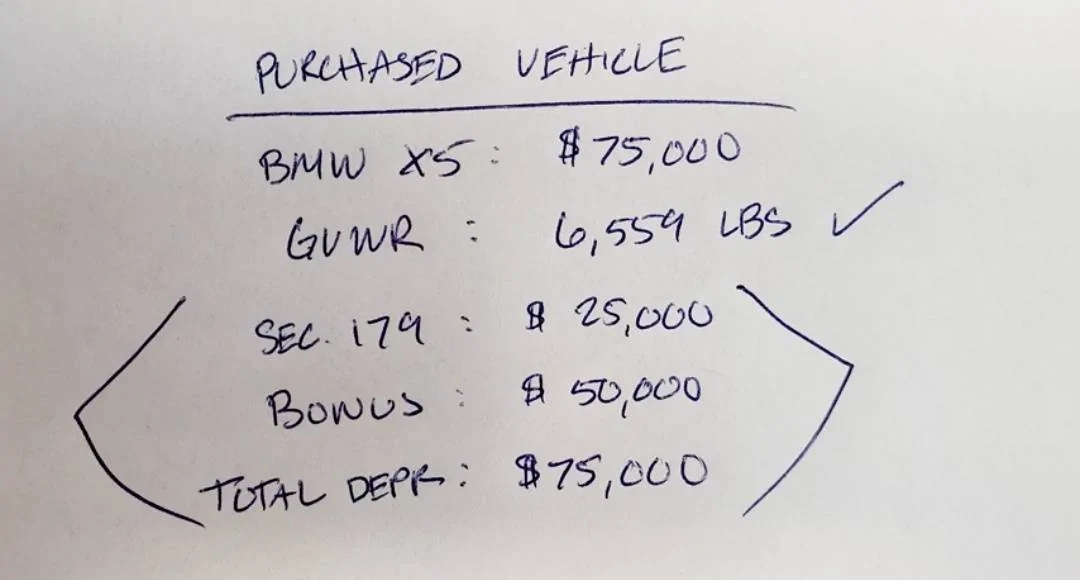 PURCHASED VEHICLE
BMW X5: $75,000
GVWR: 6,559 LBS ✓
SEC. 179: $25,000
BONUS: $50,000
TOTAL DEPR: $75,000